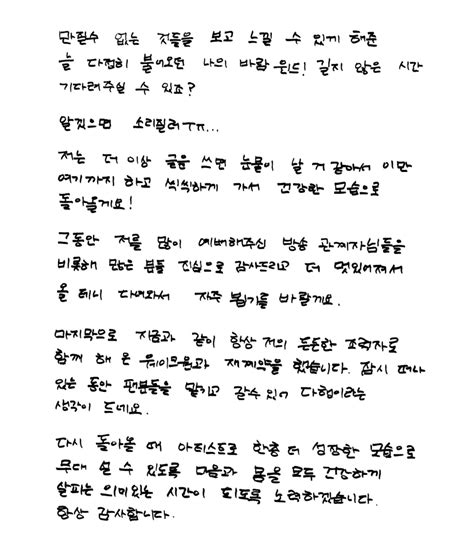 만질수 없는 것들을 보고 느낄 수 있게 해준
늘 다정히 불어오던 나의 바람 윈드! 길지 않은 시간
기다려주실 수 있죠?
알겠으면 소리질러ㅠㅠ...
저는 더 이상 글을 쓰면 눈물이 날 거 같아서 이만
여기까지 하고 씩씩하게 가서 건강한 모습으로
돌아올게요!
그동안 저를 많이 예뻐해주신 방송 관계자님들을
비롯해 많은 분들 진심으로 감사드리고 더 멋있어져서
올 테니 다녀와서 자주 뵙기를 바랄게요.
마지막으로 지금과 같이 항상 저의 든든한 조력자로
함께 해 온 웨이크원과 재계약을 했습니다. 잠시 떠나
있는 동안 팬분들을 맡기고 갈수 있어 다행이라는
생각이 드네요.
다시 돌아올 때 아티스트로 한층 더 성장한 모습으로
무대 설 수 있도록 마음과 몸을 모두 건강하게
살피는 의미있는 시간이 되도록 노력하겠습니다.
항상 감사합니다.